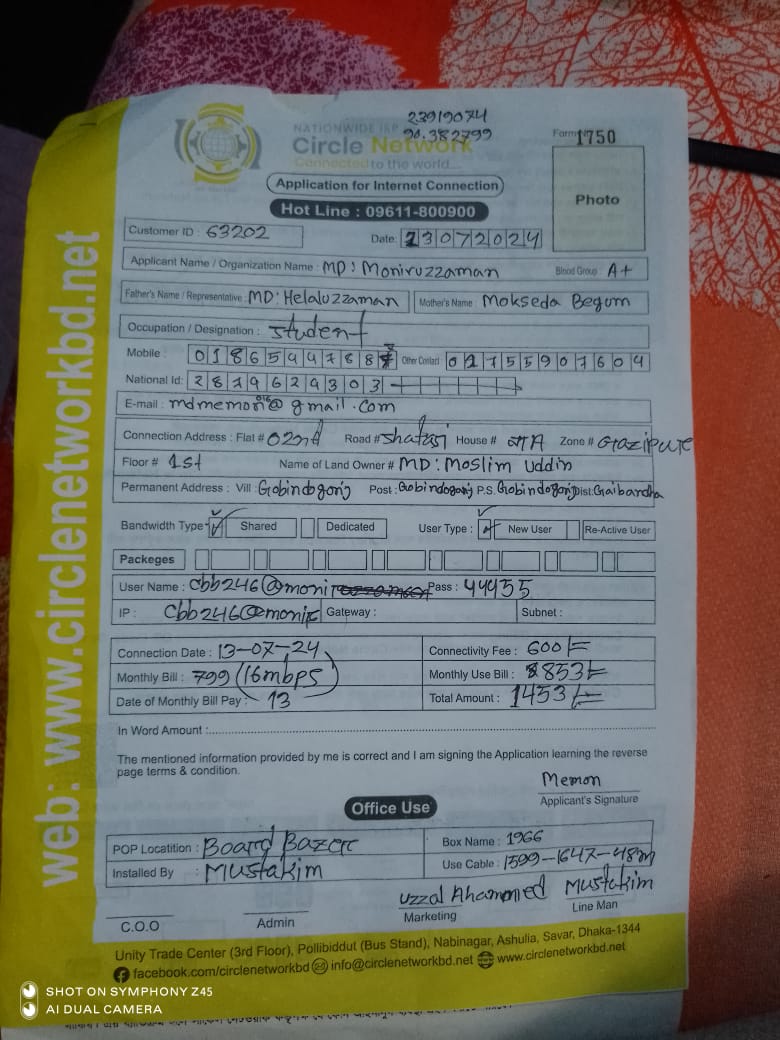 23919074
NATIONWIDE ISP 90.382799
Circle Network Form 1750
Connected to the world...
Application for Internet Connection
Photo
Hot Line : 09611-800900
Customer ID : 63202
Date: 13072024
Applicant Name / Organization Name : MD: Moniruzzaman Blood Group : A+
Father's Name / Representative : MD: Helaluzzaman Mother's Name Mokseda Begum
Occupation / Designation : Student
Mobile : 0186594788 Other Contact 01755907604
National Id: 2879629303
E-mail : @gmail.com
Connection Address : Flat # 02nd Road # House # Zone # Gazipure
Floor # 1st Name of Land Owner # MD: Moslim Uddin
Permanent Address : Vill Gobindogonj Post : Gobindogonj P.S. Gobindogonj Dist: Gaibandha
Bandwidth Type Shared Dedicated User Type : New User Re-Active User
Packeges
User Name : cbb246@monir Pass : 44955
IP : cbb246@monir Gateway : Subnet :
Connection Date : 13-07-24 Connectivity Fee : 600/=
Monthly Bill : 799 (16mbps) Monthly Use Bill : 853/=
Date of Monthly Bill Pay : 13 Total Amount : 1453/=
In Word Amount :
The mentioned information provided by me is correct and I am signing the Application learning the reverse
page terms & condition.
Memon
Applicant's Signature
Office Use
POP Locatition : Board Bazer Box Name : 1966
Installed By : Mustakim Use Cable : 1599-1647-48m
Uzzal Ahammed Mustakim
C.O.O Admin Marketing Line Man
Unity Trade Center (3rd Floor), Pollibiddut (Bus Stand), Nabinagar, Ashulia, Savar, Dhaka-1344
facebook.com/circlenetworkbd info@circlenetworkbd.net www.circlenetworkbd.net
web: www.circlenetworkbd.net
SHOT ON SYMPHONY Z45
AI DUAL CAMERA